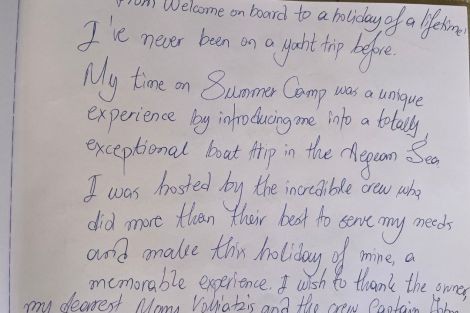 From Welcome on board to a holiday of a lifetime!
I've never been on a yaht trip before.
My time on Summer Camp was a unique
experience by introducing me into a totally
exceptional boat trip in the Aegean Sea
I was hosted by the incredible crew who
did more than their best to serve my needs
and make this holiday of mine, a
memorable experience. I wish to thank the owner
my dearest and the crew Captain